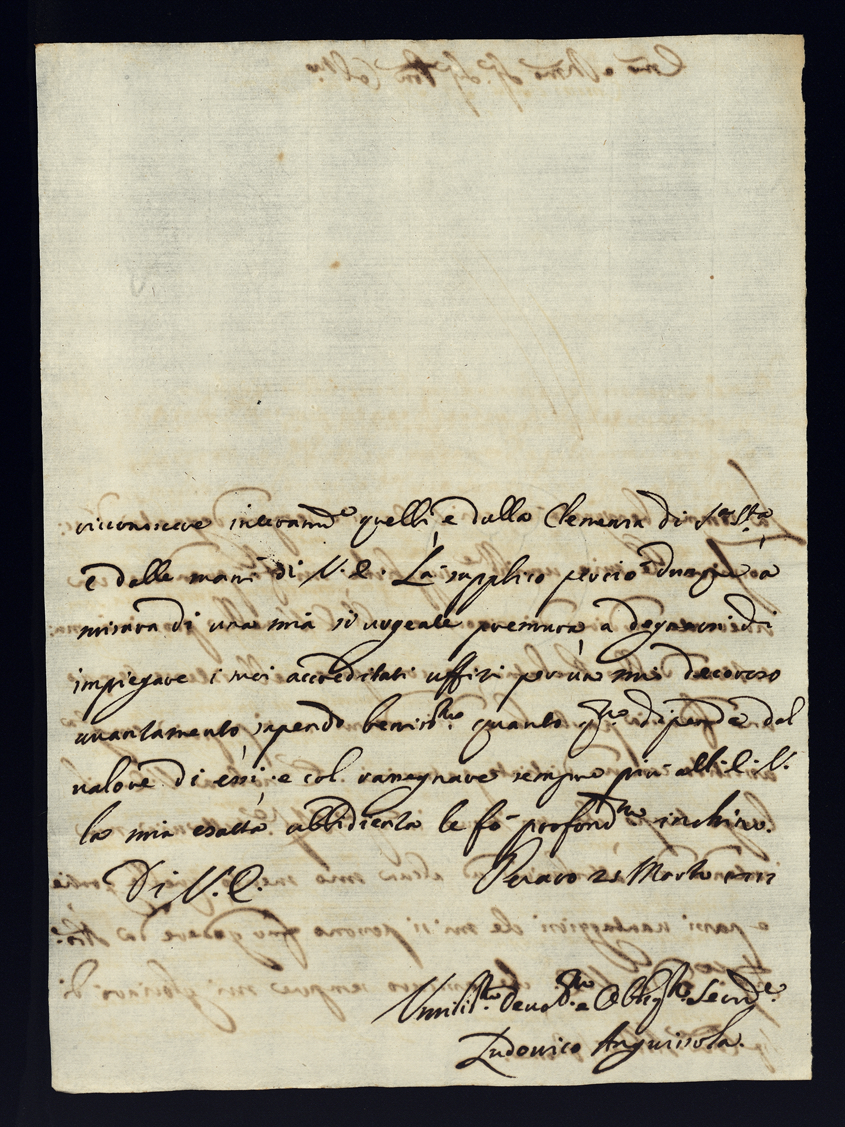 riconoscere interam.te quelli e dalla Clemenza di S. Stà
e dalle mani di V. E. La supplico perciò dunque a
misura di una mia sì urgente premura a degnarsi di
impiegare i suoi accreditati uffizi per un mio decoroso
avantamento sapendo beniss.mo quanto q.to dipende dal
valore di essi: e col rassegnare sempre più all' E. V.
la mia esatta obbidienza le fo profond.mo inchino.
Di V. E.
Pesaro 21 Marzo
Umiliss.mo Devot.mo e Obblig.mo Serv.re
Ludovico Anguissola.